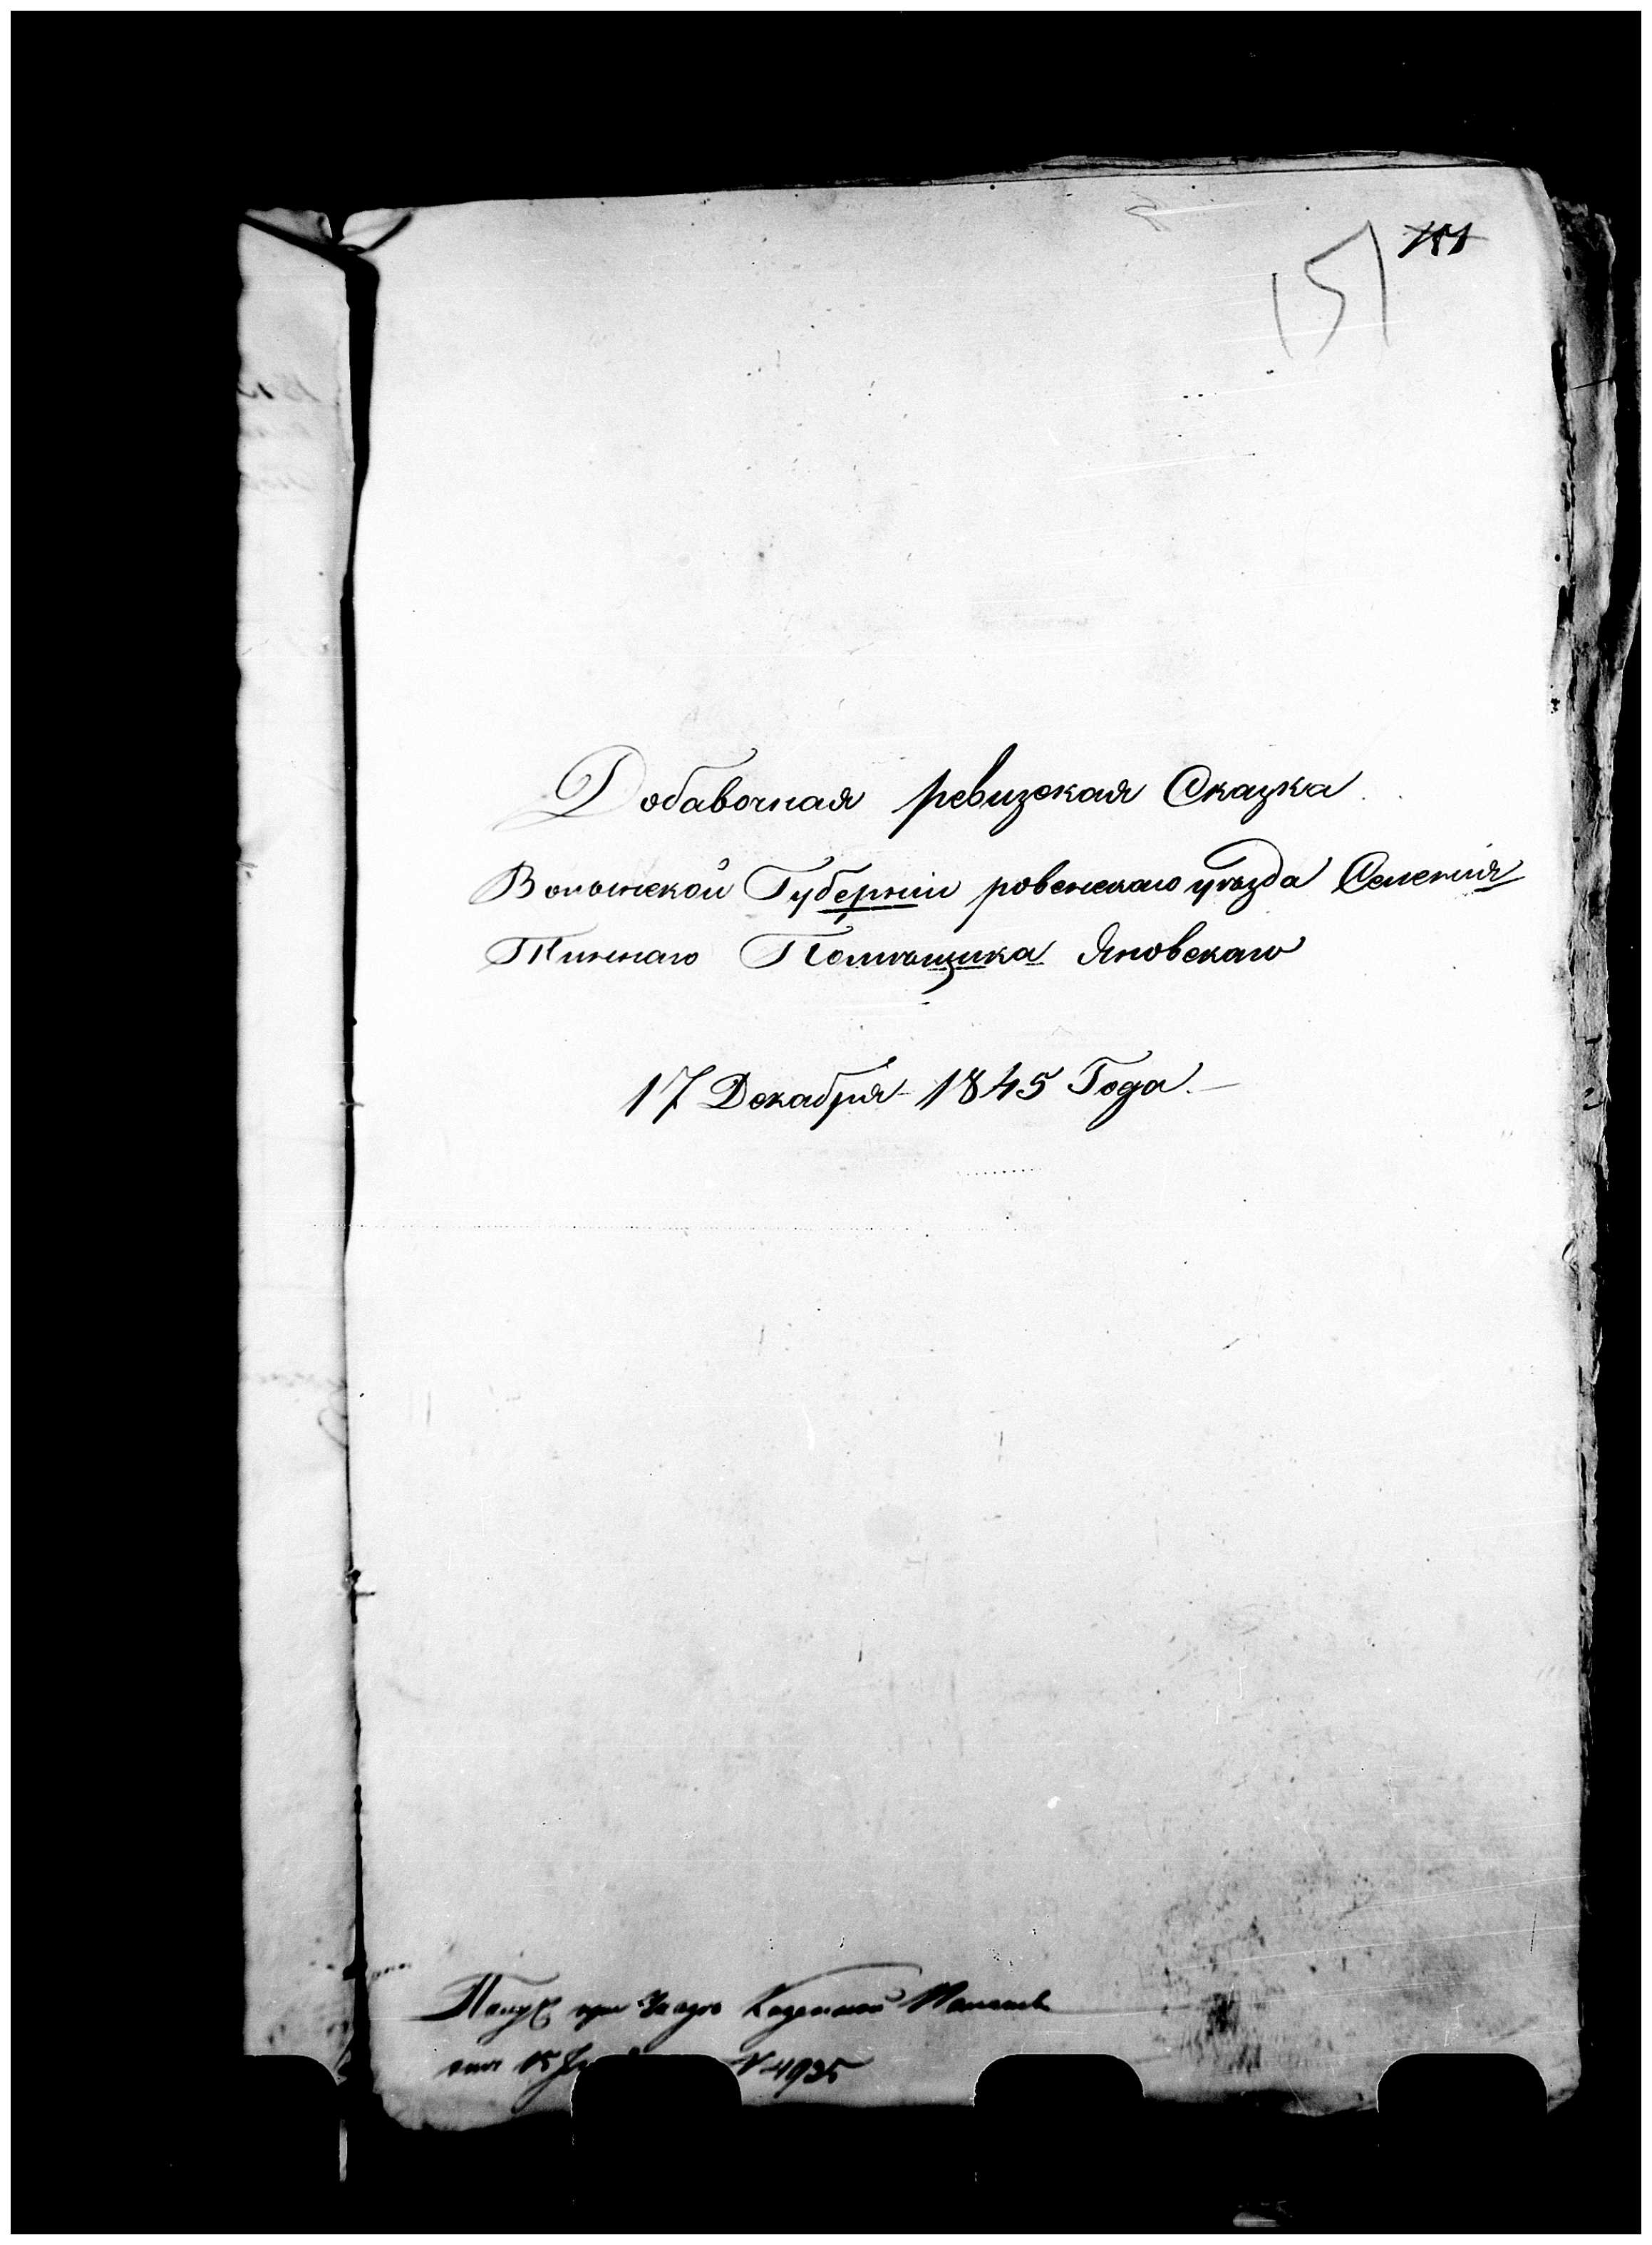 151 151
Добавочная ревизская Сказка
Волынской Губерніи ровенскаго уѣзда Селенія
Тиннаго Помѣщика Яновскаго
17 Декабря 1845 Года.
Получ при Указѣ Казенной Палаты
отъ 15 № 4935